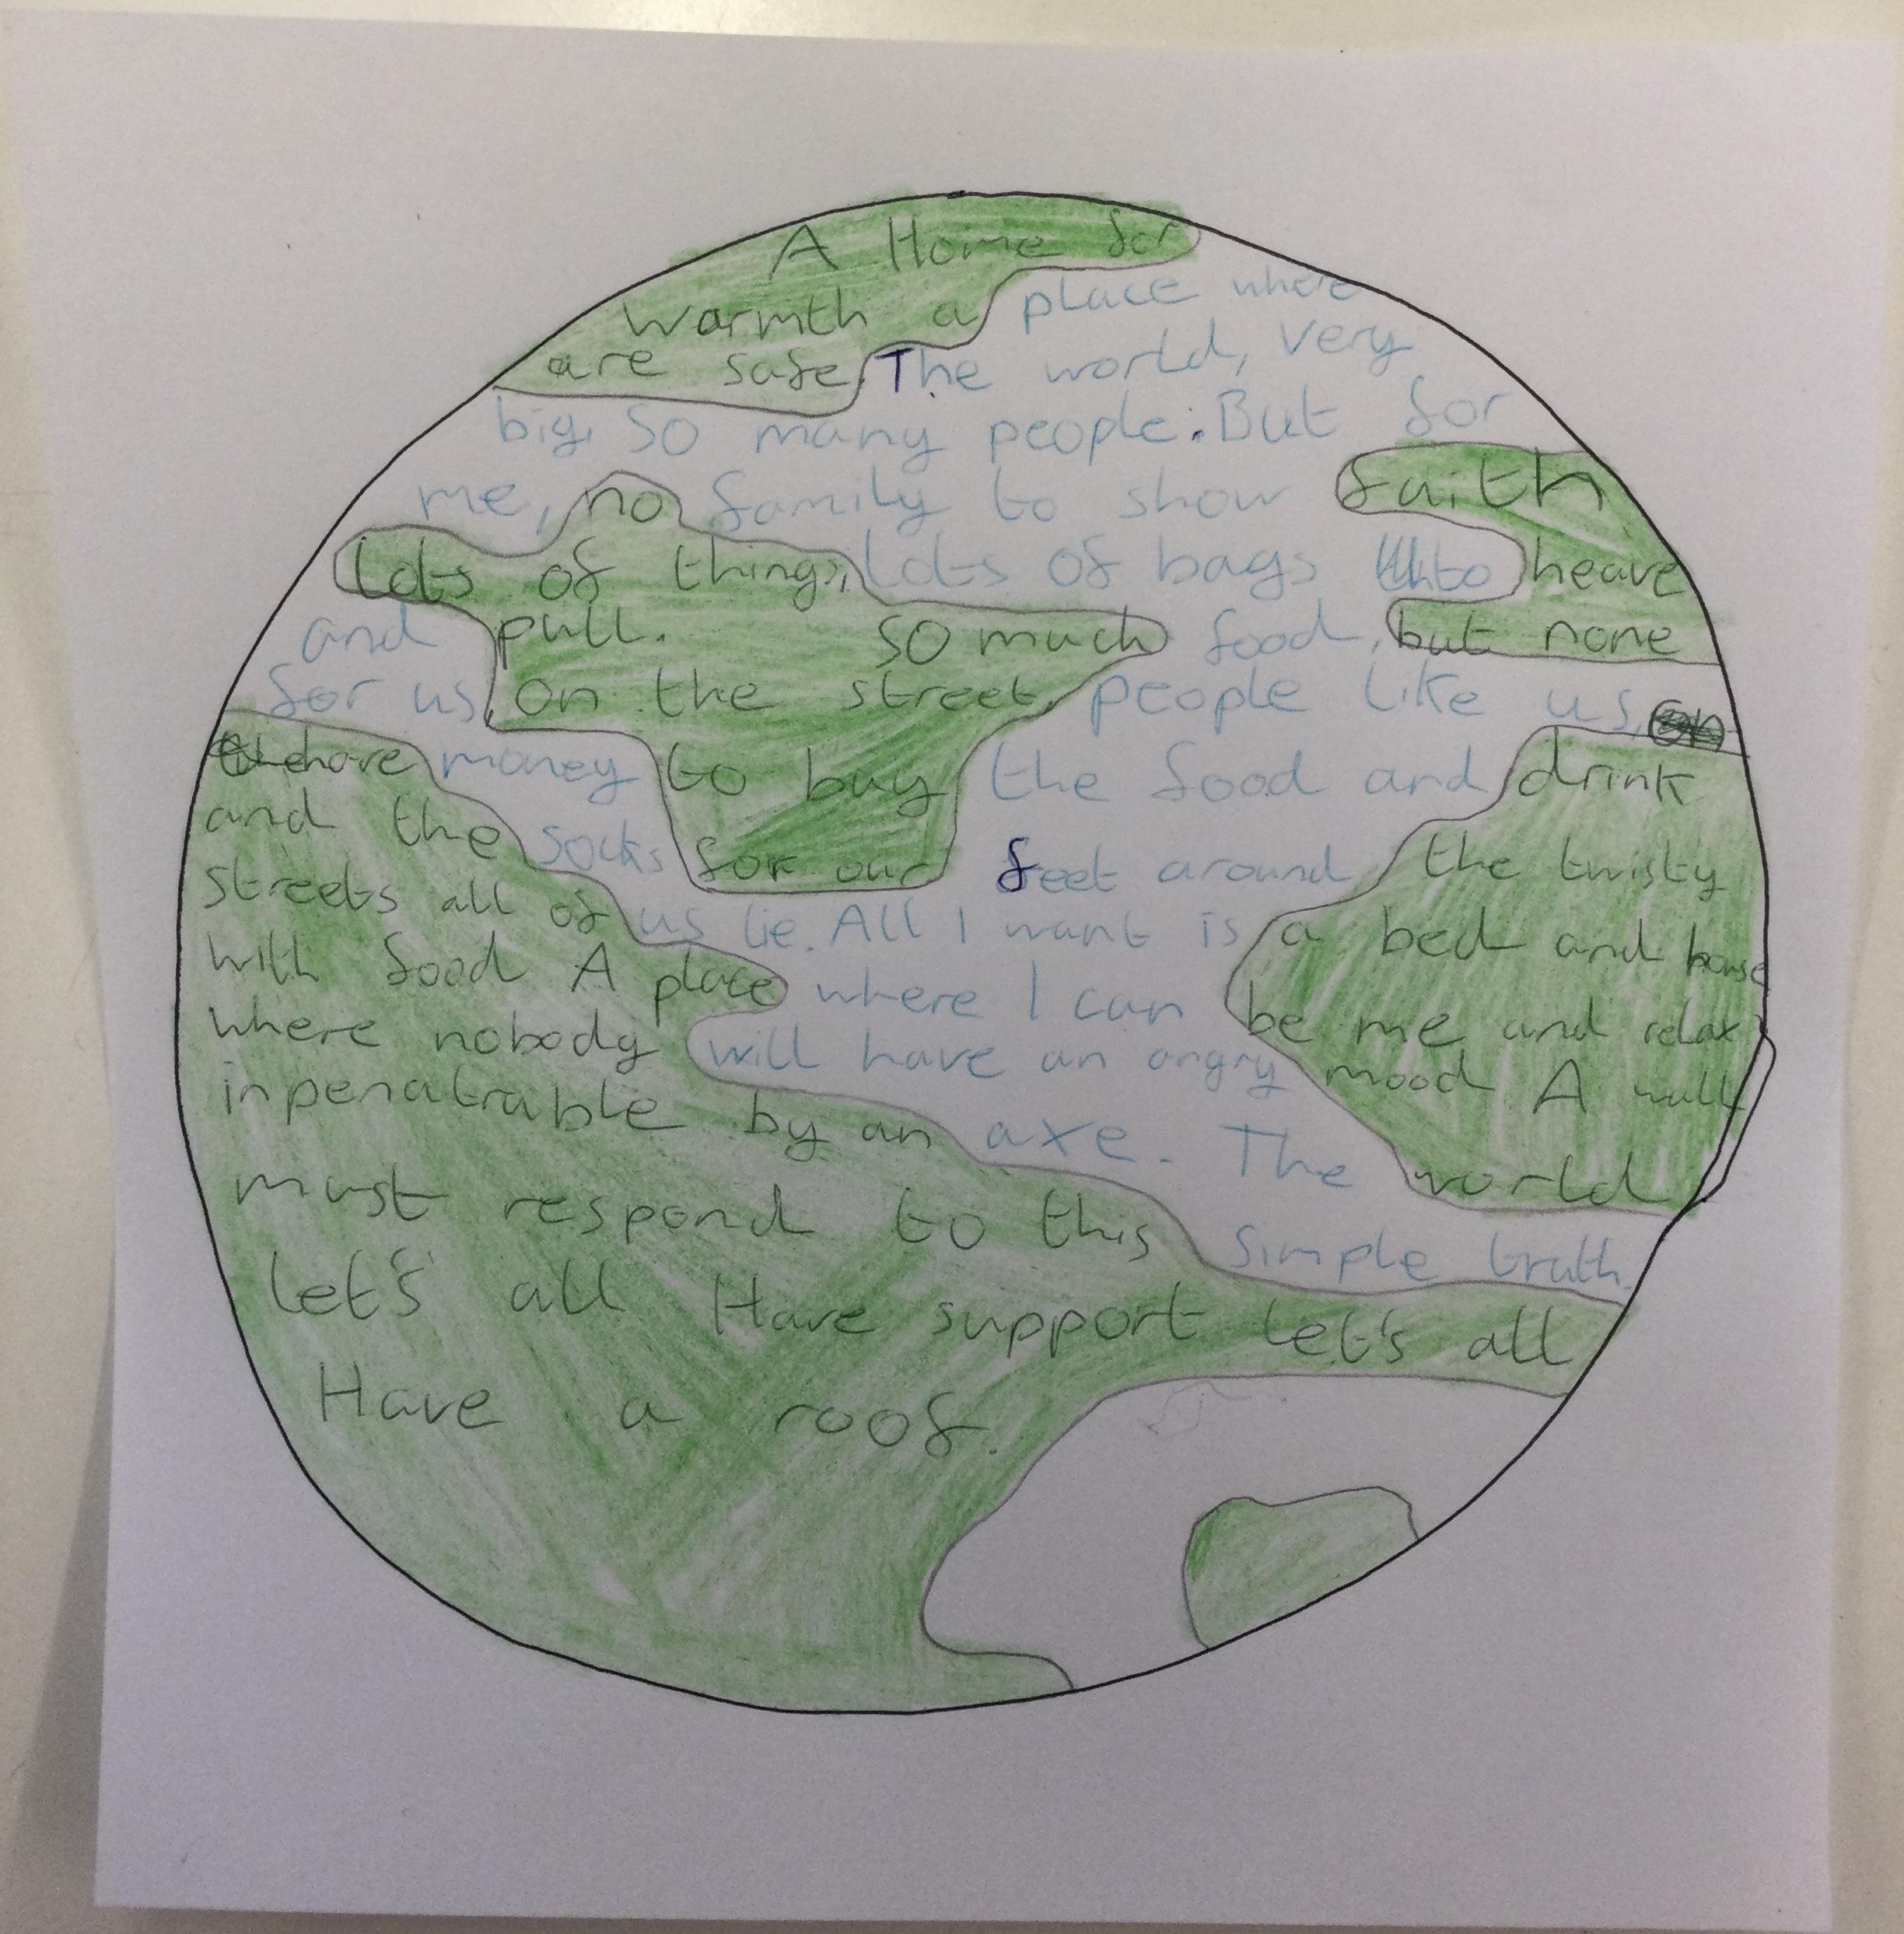 A Home for
warmth a place where
are safe. The world, very
big, so many people. But for
me, no family to show faith
lots of things, lots of bags to heave
and pull. so much food, but none
for us, on the street, people like us,
have money to buy the food and drink
and the socks for our feet around the twisty
streets all of us lie. All I want is a bed and house
with food A place where I can be me and relax
where nobody will have an angry mood A wall
inpenatrable by an axe. The world
must respond to this simple truth
let's all Have support let's all
Have a roof.